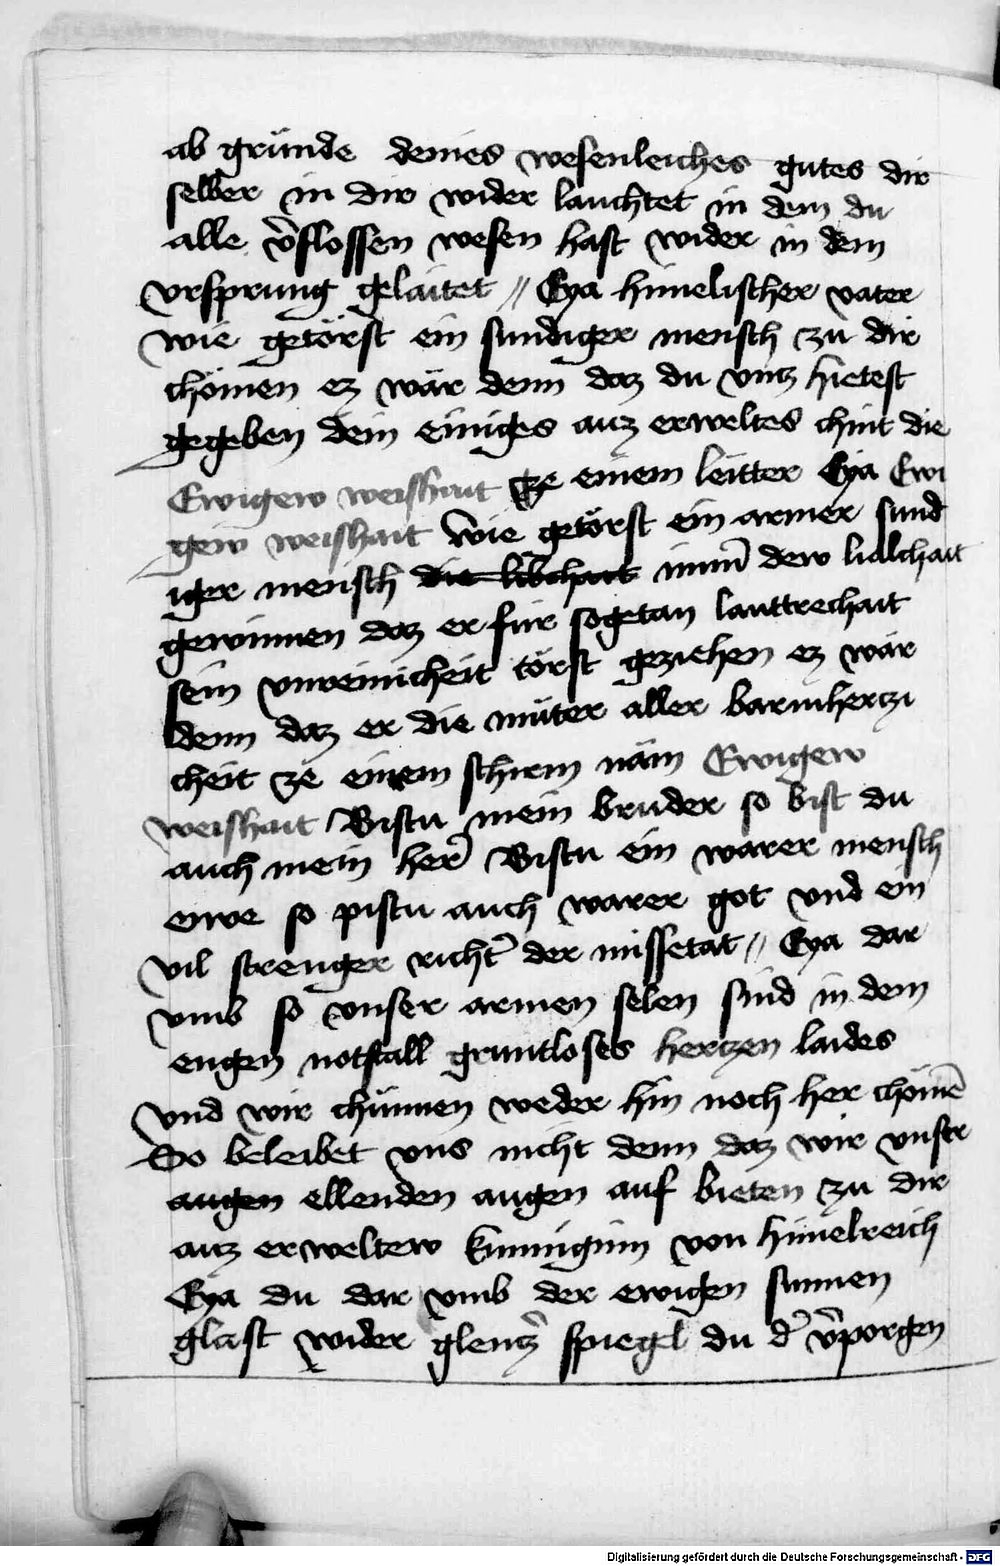 ab gründe deines wesenleiches gutes dir
selber in dir wider lauchtet in dem du
alle v̉flossen wesen hast wider in dem
vrsprung gelaitet // Eya himelischer vater
wie getörst ein sundiger mensch zu dir
chömen ez wär denn daz du vntz hietest
gegeben dein einiges auz erweltes chint die
Ewigew weishait ze einem leitter Eya Ewi
gew weishait wie getörst ein armer sund
iger mensch die libchait
gewinnen daz er für sogetan lauttrechait
sein vnreinicheit törst geziehen ez wär
denn daz er die müter aller barmhertzi
cheit ze einem schirm näm Ewigew
weishait Bistu mein bruder so bist du
auch mein her̉ Bistu ein warer mensch
ewe so pistu auch warer got vnd ein
vil strenger richt̉ der missetat // Eya dar
vmb so vnser armen selen sind in dem
engen notstall gruntloses hertzen laides
vnd wir chünnen weder hin noch her chömē
So beleibet vns nicht denn daz wir vnser
augen ellenden augen auf bieten zu dir
auz erweltew kunniginn von himelreich
Eya du dar vmb der ewigen sunnen
glast wider glentz̉ spiegel du d̉ v̉porgen
Digitalisierung gefördert durch die Deutsche Forschungsgemeinschaft - DFG